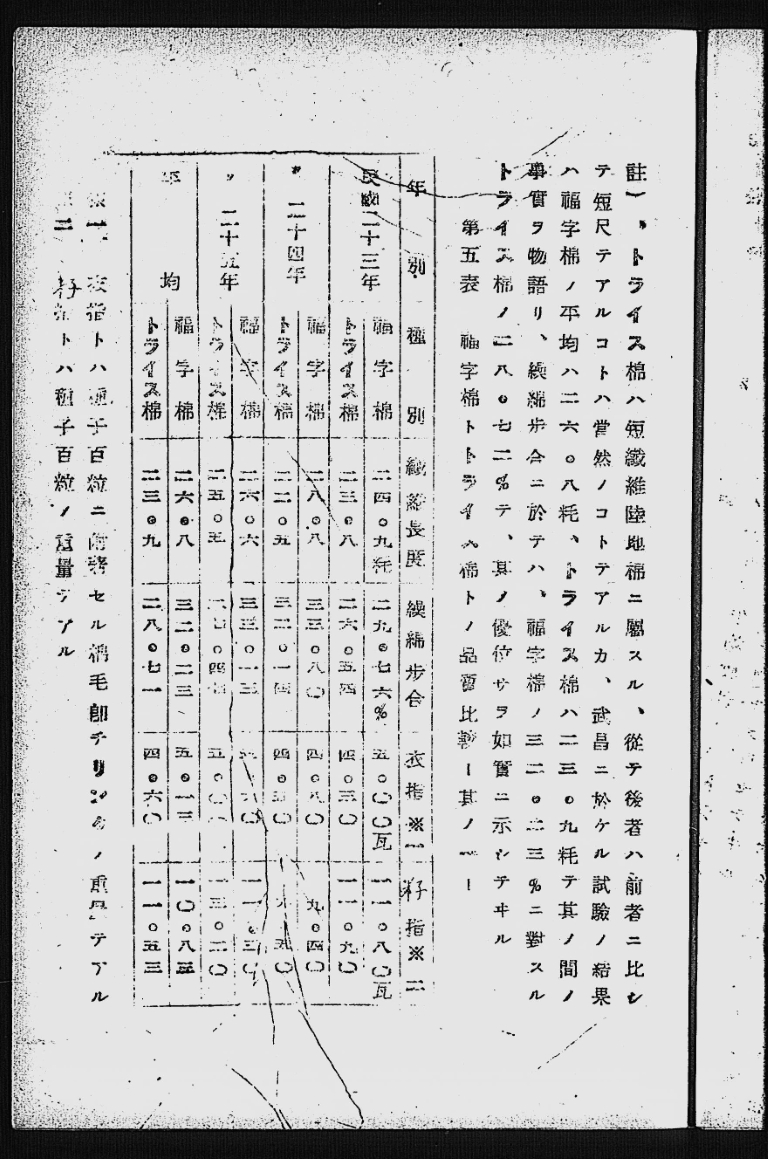 註）、トライス棉ハ短纖維陸地棉ニ屬スル、從テ後者ハ前者ニ比シ
テ短尺テアルコトハ當然ノコトテアルカ、武昌ニ於ケル試驗ノ結果
ハ福字棉ノ平均ハ二六。〇八粍、トライス棉ハ二三。九粍テ其ノ間ノ
事實ヲ物語リ、繰綿步合ニ於テハ、福字棉ノ三二。二三％ニ對スル
トライス棉ノ二八。七二％テ、其ノ優位サヲ如實ニ示シテヰル
第五表 福字棉トトライス棉トノ品質比較ー其ノ一ー
年別 種別 纖維長度 繰綿步合 衣指※一 籽指※二
民國二十三年 福字棉 二四。九粍 二九。七六％ 五。〇〇瓦 一一。八〇瓦
トライス棉 二三。八 二六。五四 四。三〇 一一。九〇
〃 二十四年 福字棉 二八。八 三三。八〇 四。八〇 九。四〇
トライス棉 二二。五 三二。一四 四。五〇
〃 二十五年 福字棉 二六。六 三三。一三 一一。三〇
トライス棉 二五。五 一三。二〇
平均 福字棉 二六。八 三二。二三 五。一三 一〇。八三
トライス棉 二三。九 二八。七一 四。六〇 一一。五三
一、衣指トハ種子百粒ニ附著セル棉毛卽チリントノ重量テアル
二 籽指トハ種子百粒ノ重量テアル